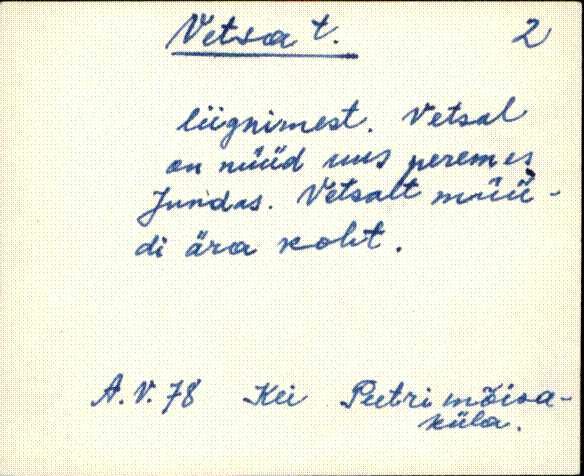 Vetsa t. 2
liignimest. Vetsal
on nüüd uus peremes
Jundas. Vetsalt müü-
di ära koht.
A.V. 78 Kei Peetri mõisa-
küla.